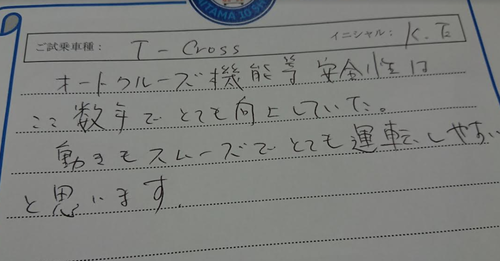 ご試乗車種： T-Cross イニシャル： K.T
オートクルーズ機能等安全性は
ここ数年でとても向上していた。
動きもスムーズでとても運転しやすい
と思います。